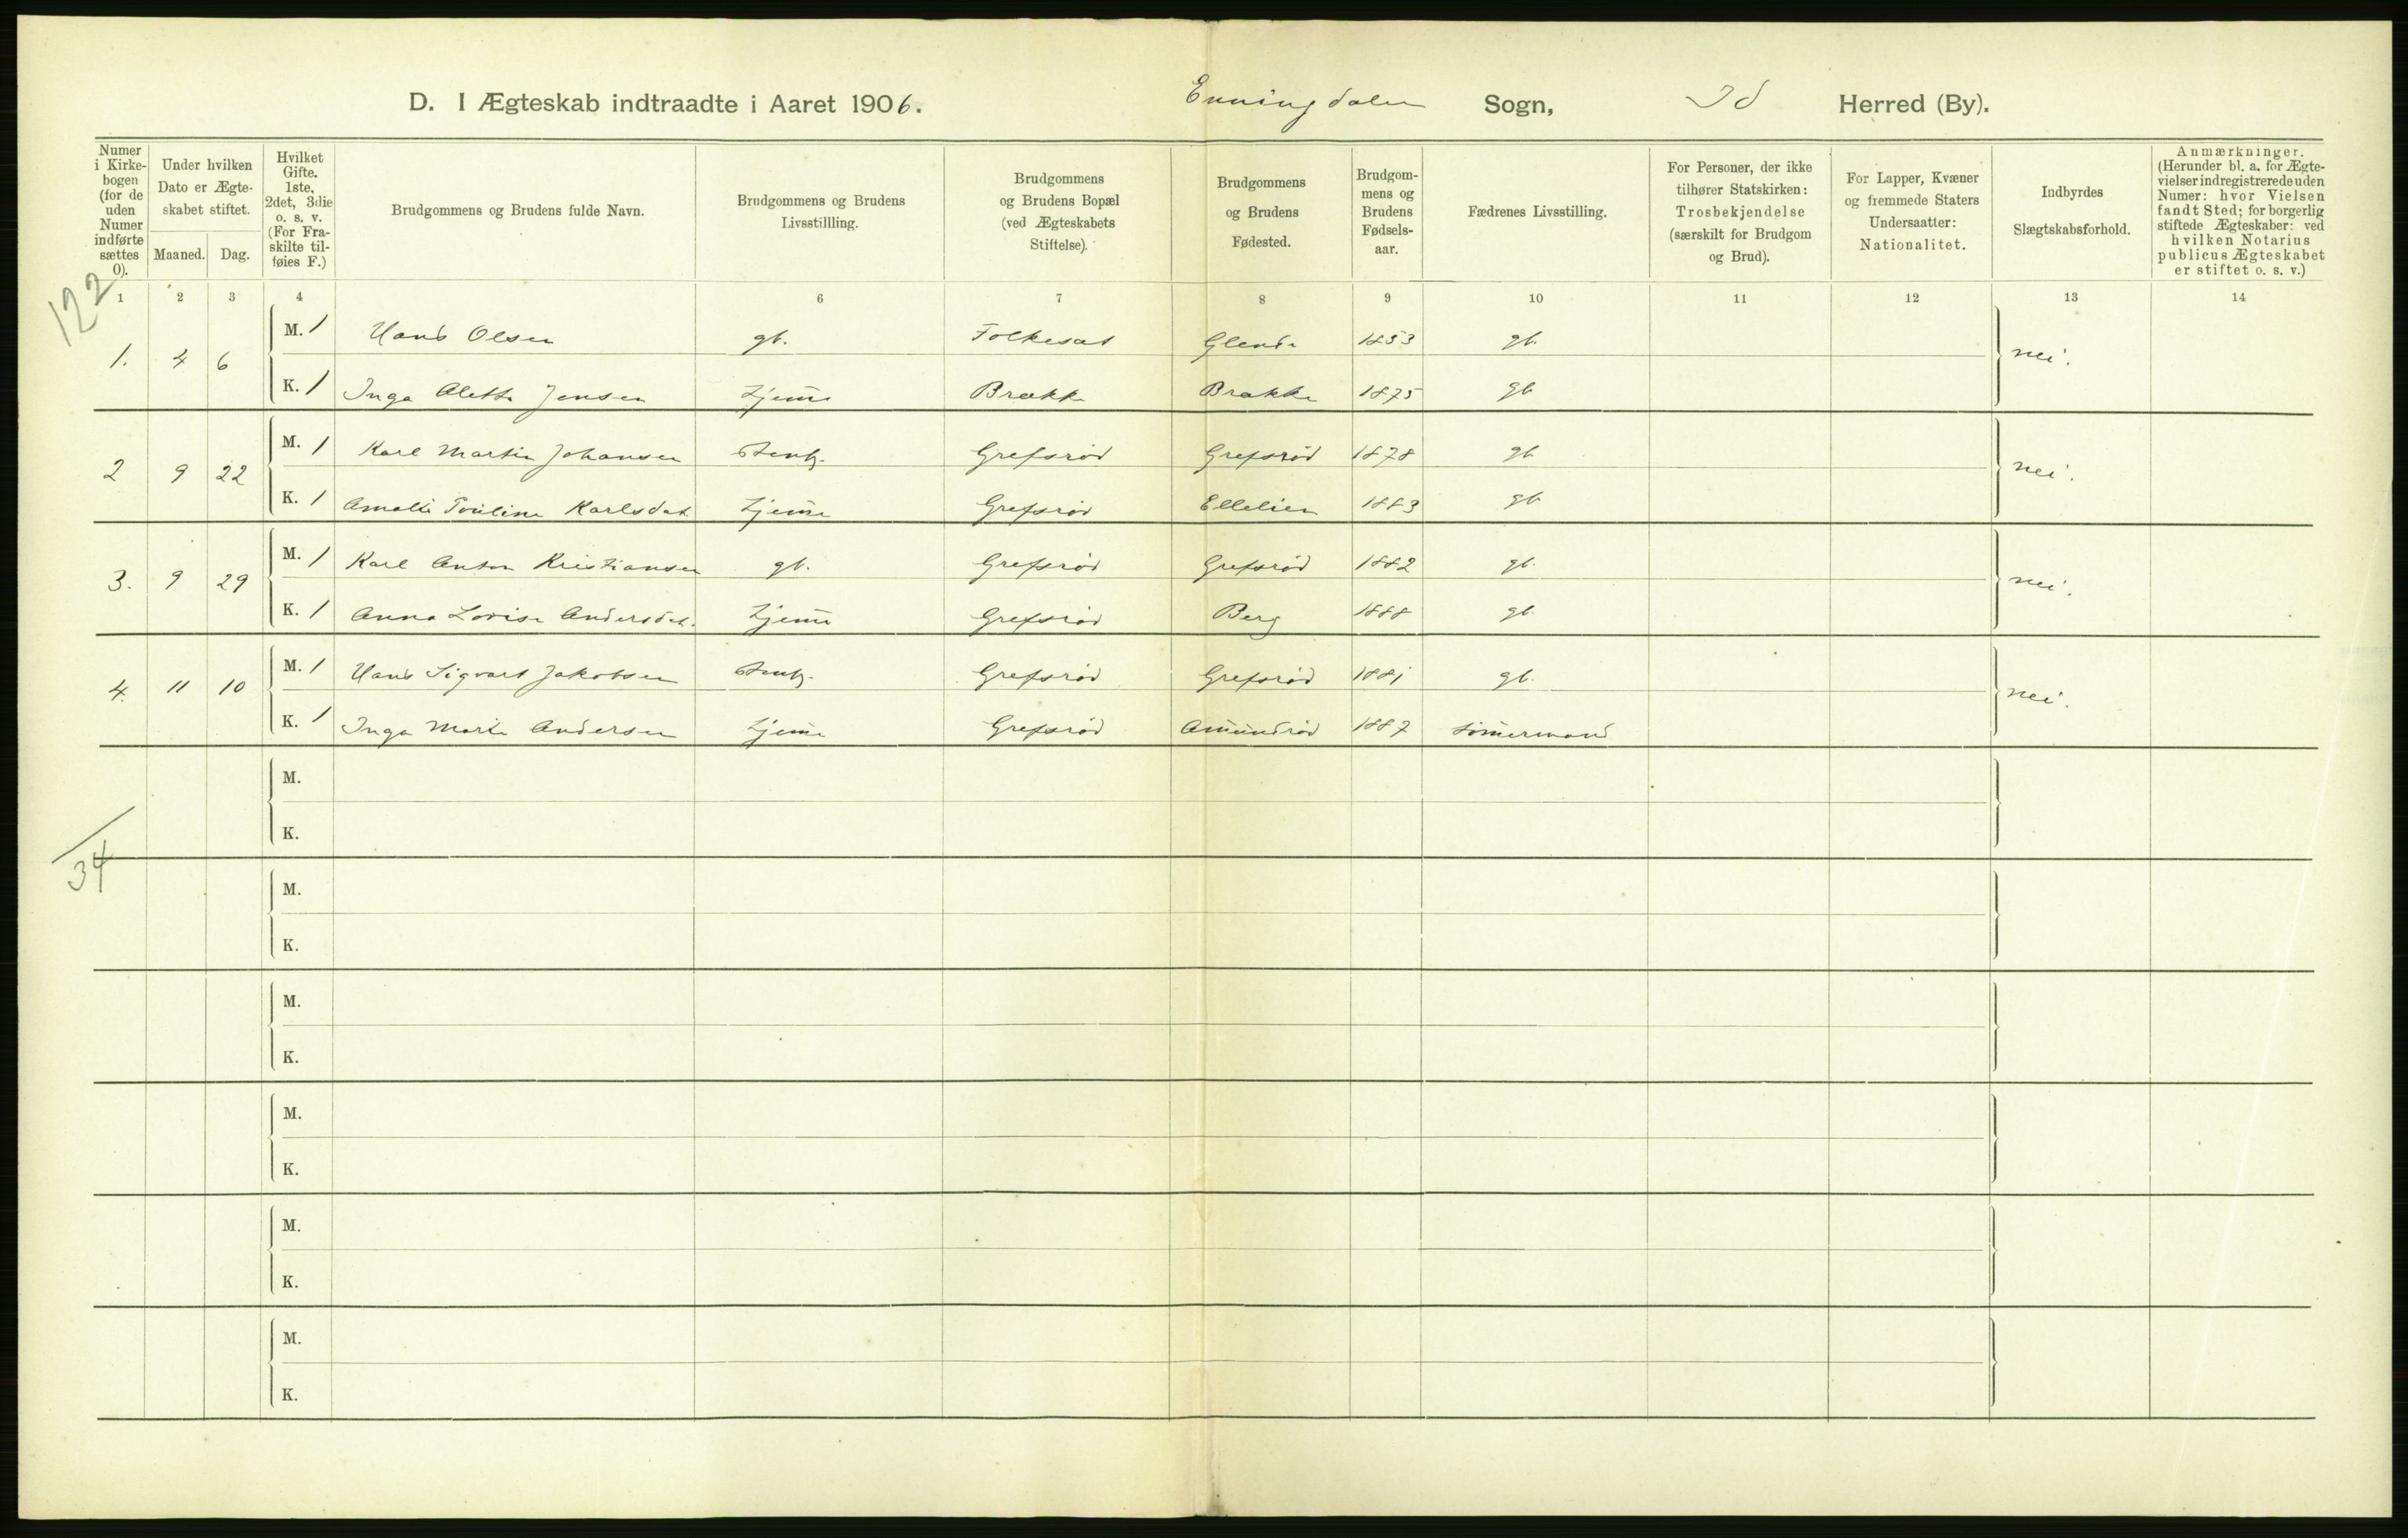 D. I Ægteskab indtraadte i Aaret 1906. Enningdalen Sogn, Id Herred (By).
Numer i Kirke-bogen (for de uden Numer indførte sættes 0).
Under hvilken Dato er Ægte-skabet stiftet.
Maaned. Dag.
Hvilket Gifte. 1ste, 2det, 3die o. s. v. (For Fra-skilte til-føies F.)
Brudgommens og Brudens fulde Navn.
Brudgommens og Brudens Livsstillling.
Brudgommens og Brudens Bopæl (ved Ægteskabets Stiftelse).
Brudgommens og Brudens Fødested.
Brudgom-mens og Brudens Fødsels-aar.
Fædrenes Livsstilling.
For Personer, der ikke tilhører Statskirken: Trosbekjendelse (særskilt for Brudgom og Brud).
For Lapper, Kvæner og fremmede Staters Undersaatter: Nationalitet.
Indbyrdes Slægtskabsforhold.
Anmærkninger. (Herunder bl. a. for Ægte-vielser indregistrerede uden Numer: hvor Vielsen fandt Sted; for borgerlig stiftede Ægteskaber: ved hvilken Notarius publicus Ægteskabet er stiftet o. s. v.)
122
1 2 3 4 6 7 8 9 10 11 12 13 14
1. 4 6 M. 1 Hans Olsen gb. Folkesat 1853 gb. nei.
K. 1 Inga Aletta Jensen tjener Brække Brække 1875 gb
2 9 22 M. 1 Karl Martin Johansen Stenh. Grefsrød Grefsrød 1878 gb nei.
K. 1 Amalie Pauline Karlsdat tjener Grefsrød Ellelien 1883 gb
3. 9 29 M. 1 Karl Anton Kristiansen gb. Grefsrød Grefsrød 1882 gb. nei.
K. 1 Anna Lovise Andersdat. tjener Grefsrød Berg 1888 gb.
4. 11 10 M. 1 Hans Sigvart Jakobsen Stenh. Grefsrød Grefsrød 1881 gb. nei.
K. 1 Inga Marie Andersen tjener Grefsrød Amundrød 1887 tømermand
M.
K.
34
M.
K.
M.
K.
M.
K.
M.
K.
M.
K.